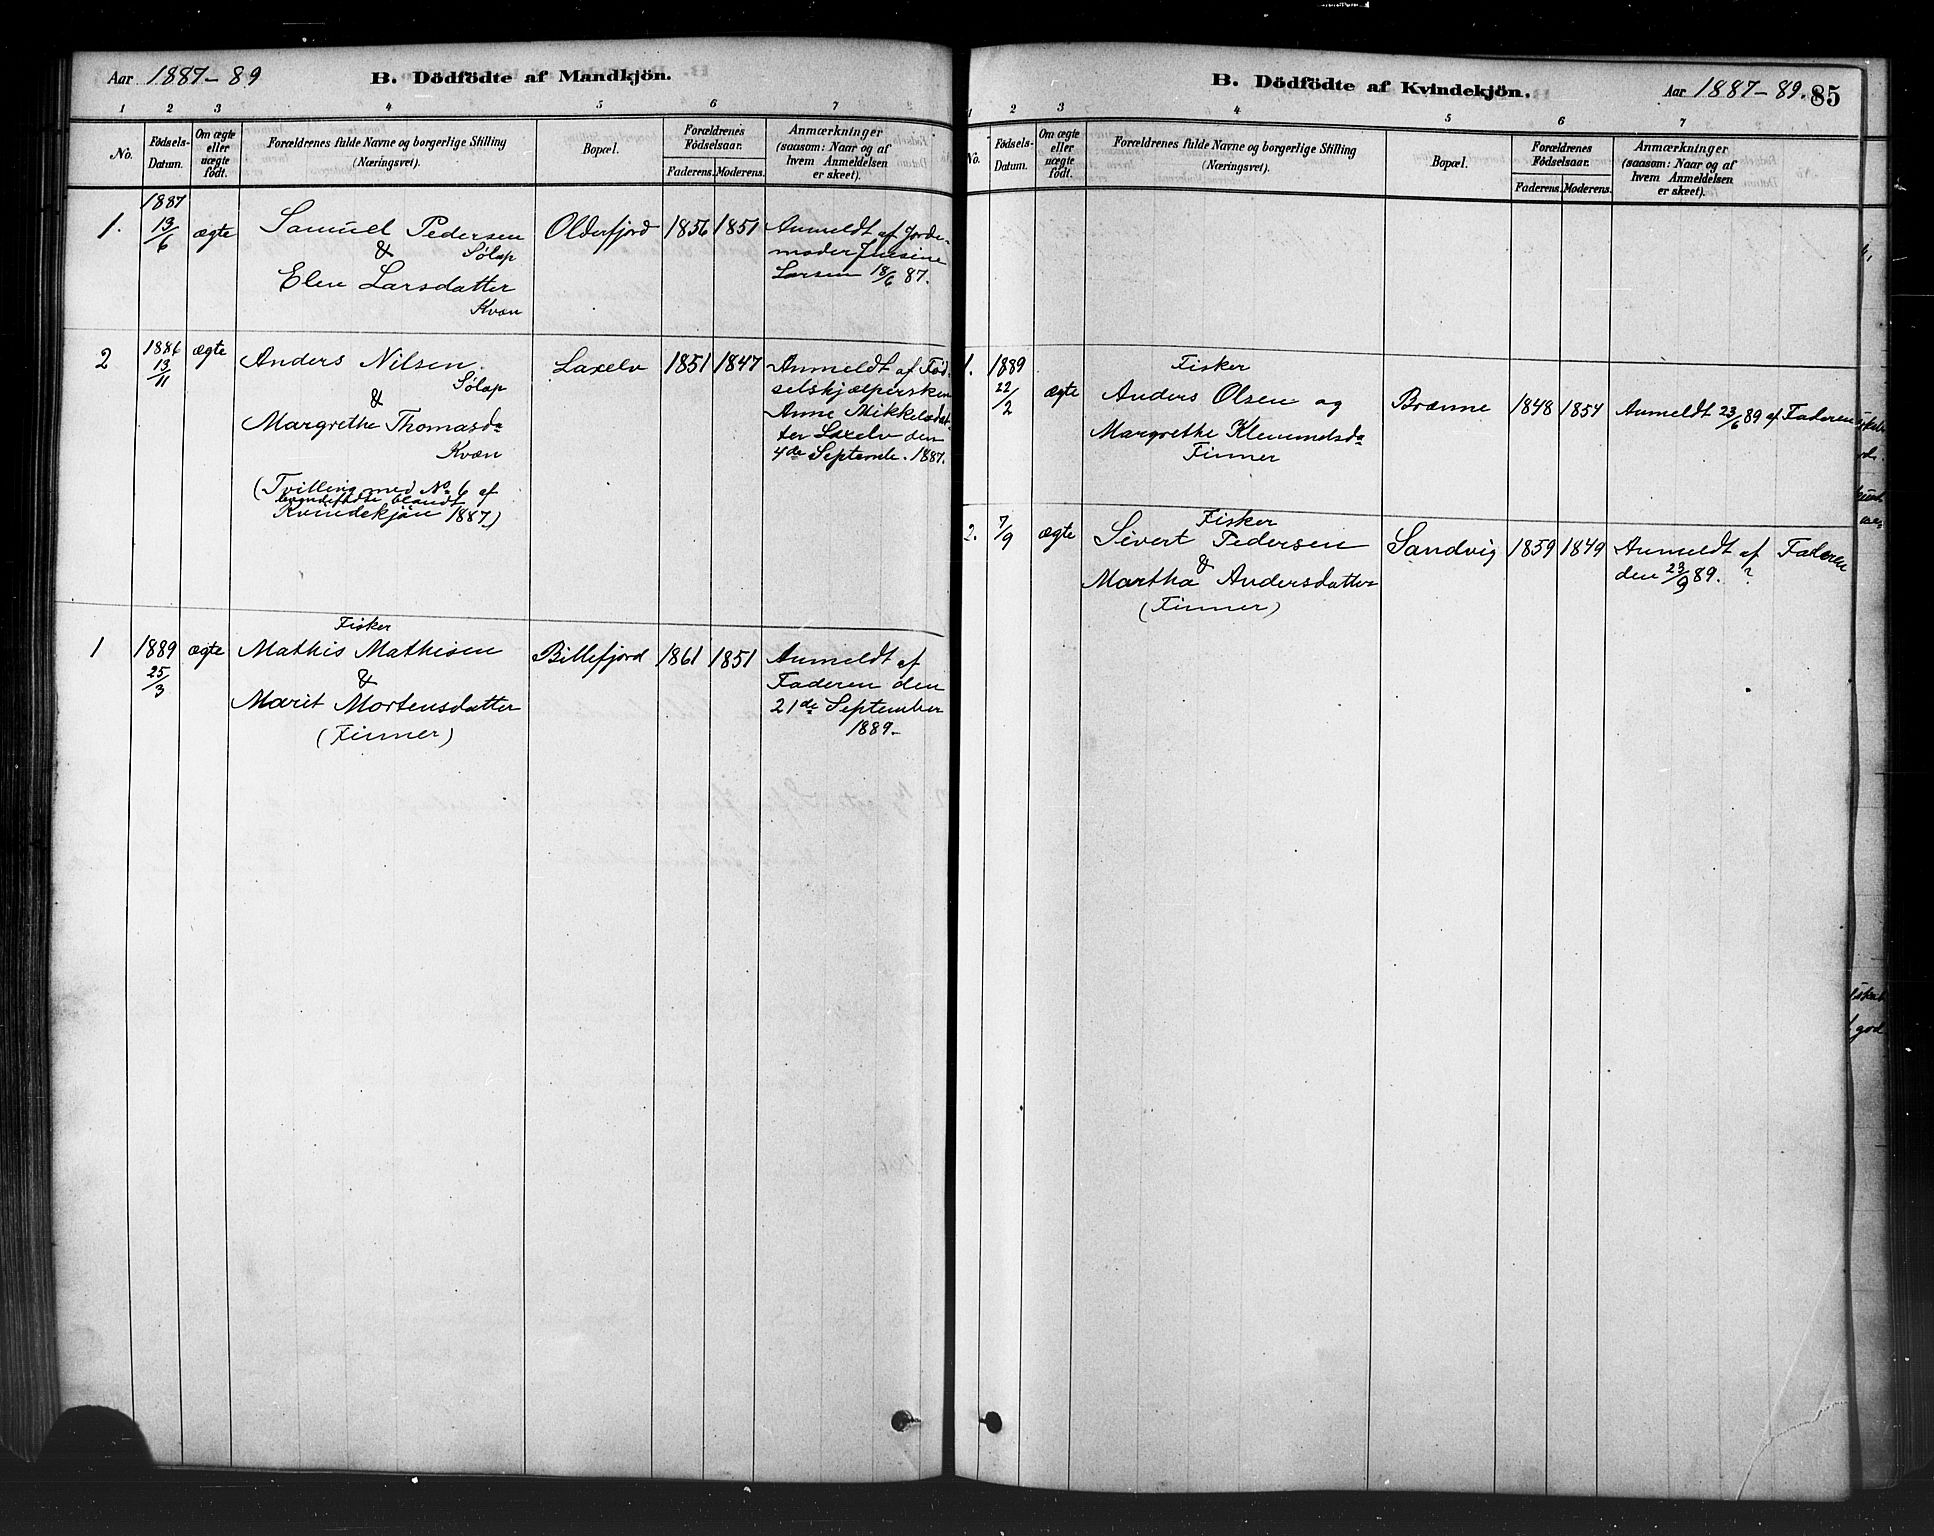 Aar 1887-89
B. Dödfödte af Mandkjön.
1 2 3 4 5 6 7
No.
Födsels-
Datum.
Om ægte
eller
uægte
født.
Forældrenes fulde Navne og borgerlige Stilling
(Næringsvei).
Bopæl.
Forældrenes
Födselsaar.
Faderens. Moderens.
Anmærkninger
(saasom: Naar og af
hvem Anmeldelsen
er skeet).
1887
1. 13/6 ægte Samuel Pedersen Olderfjord 1856 1851 Anmeldt af Jorde-
& Sölap moder Jensine
Elen Larsdatter Larsen 18/6 87.
Kvæn
2 1886 13/11 ægte Anders Nilsen Laxelv 1851 1847 Anmeldt af Fød-
Sölap selshjælpersken
& Anne Mikkelsdat-
Margrethe Thomasda ter Laxelv den
Kvæn 4de Septemb. 1887.
(Tvilling med No 6 af
levendefødte blandt
Kvindekjön 1887)
Fisker
1 1889 25/3 ægte Mathis Mathisen Billefjord 1861 1851 Anmeldt af
& Faderen den
Marit Mortensdatter 21de September
(Finner) 1889-
B. Dödfödte af Kvindekjön.
Aar 1887-89. 85
1 2 3 4 5 6 7
No.
Födsels-
Datum.
Om ægte
eller
uægte
født.
Forældrenes fulde Navne og borgerlige Stilling
(Næringsvei).
Bopæl.
Forældrenes
Födselsaar.
Faderens. Moderens.
Anmærkninger
(saasom: Naar og af
hvem Anmeldelsen
er skeet).
1. 1889 Fisker
22/2 ægte Anders Olsen og Brænne 1848 1854 Anmeldt 23/6 89 af Faderen
Margrethe Klemmetsda
Finner
Fisker
2. 7/9 ægte Sivert Pedersen Sandvig 1859 1849 Anmeldt af Faderen
& den 23/9 89. ?
Martha Andersdatter
(Finner)
god